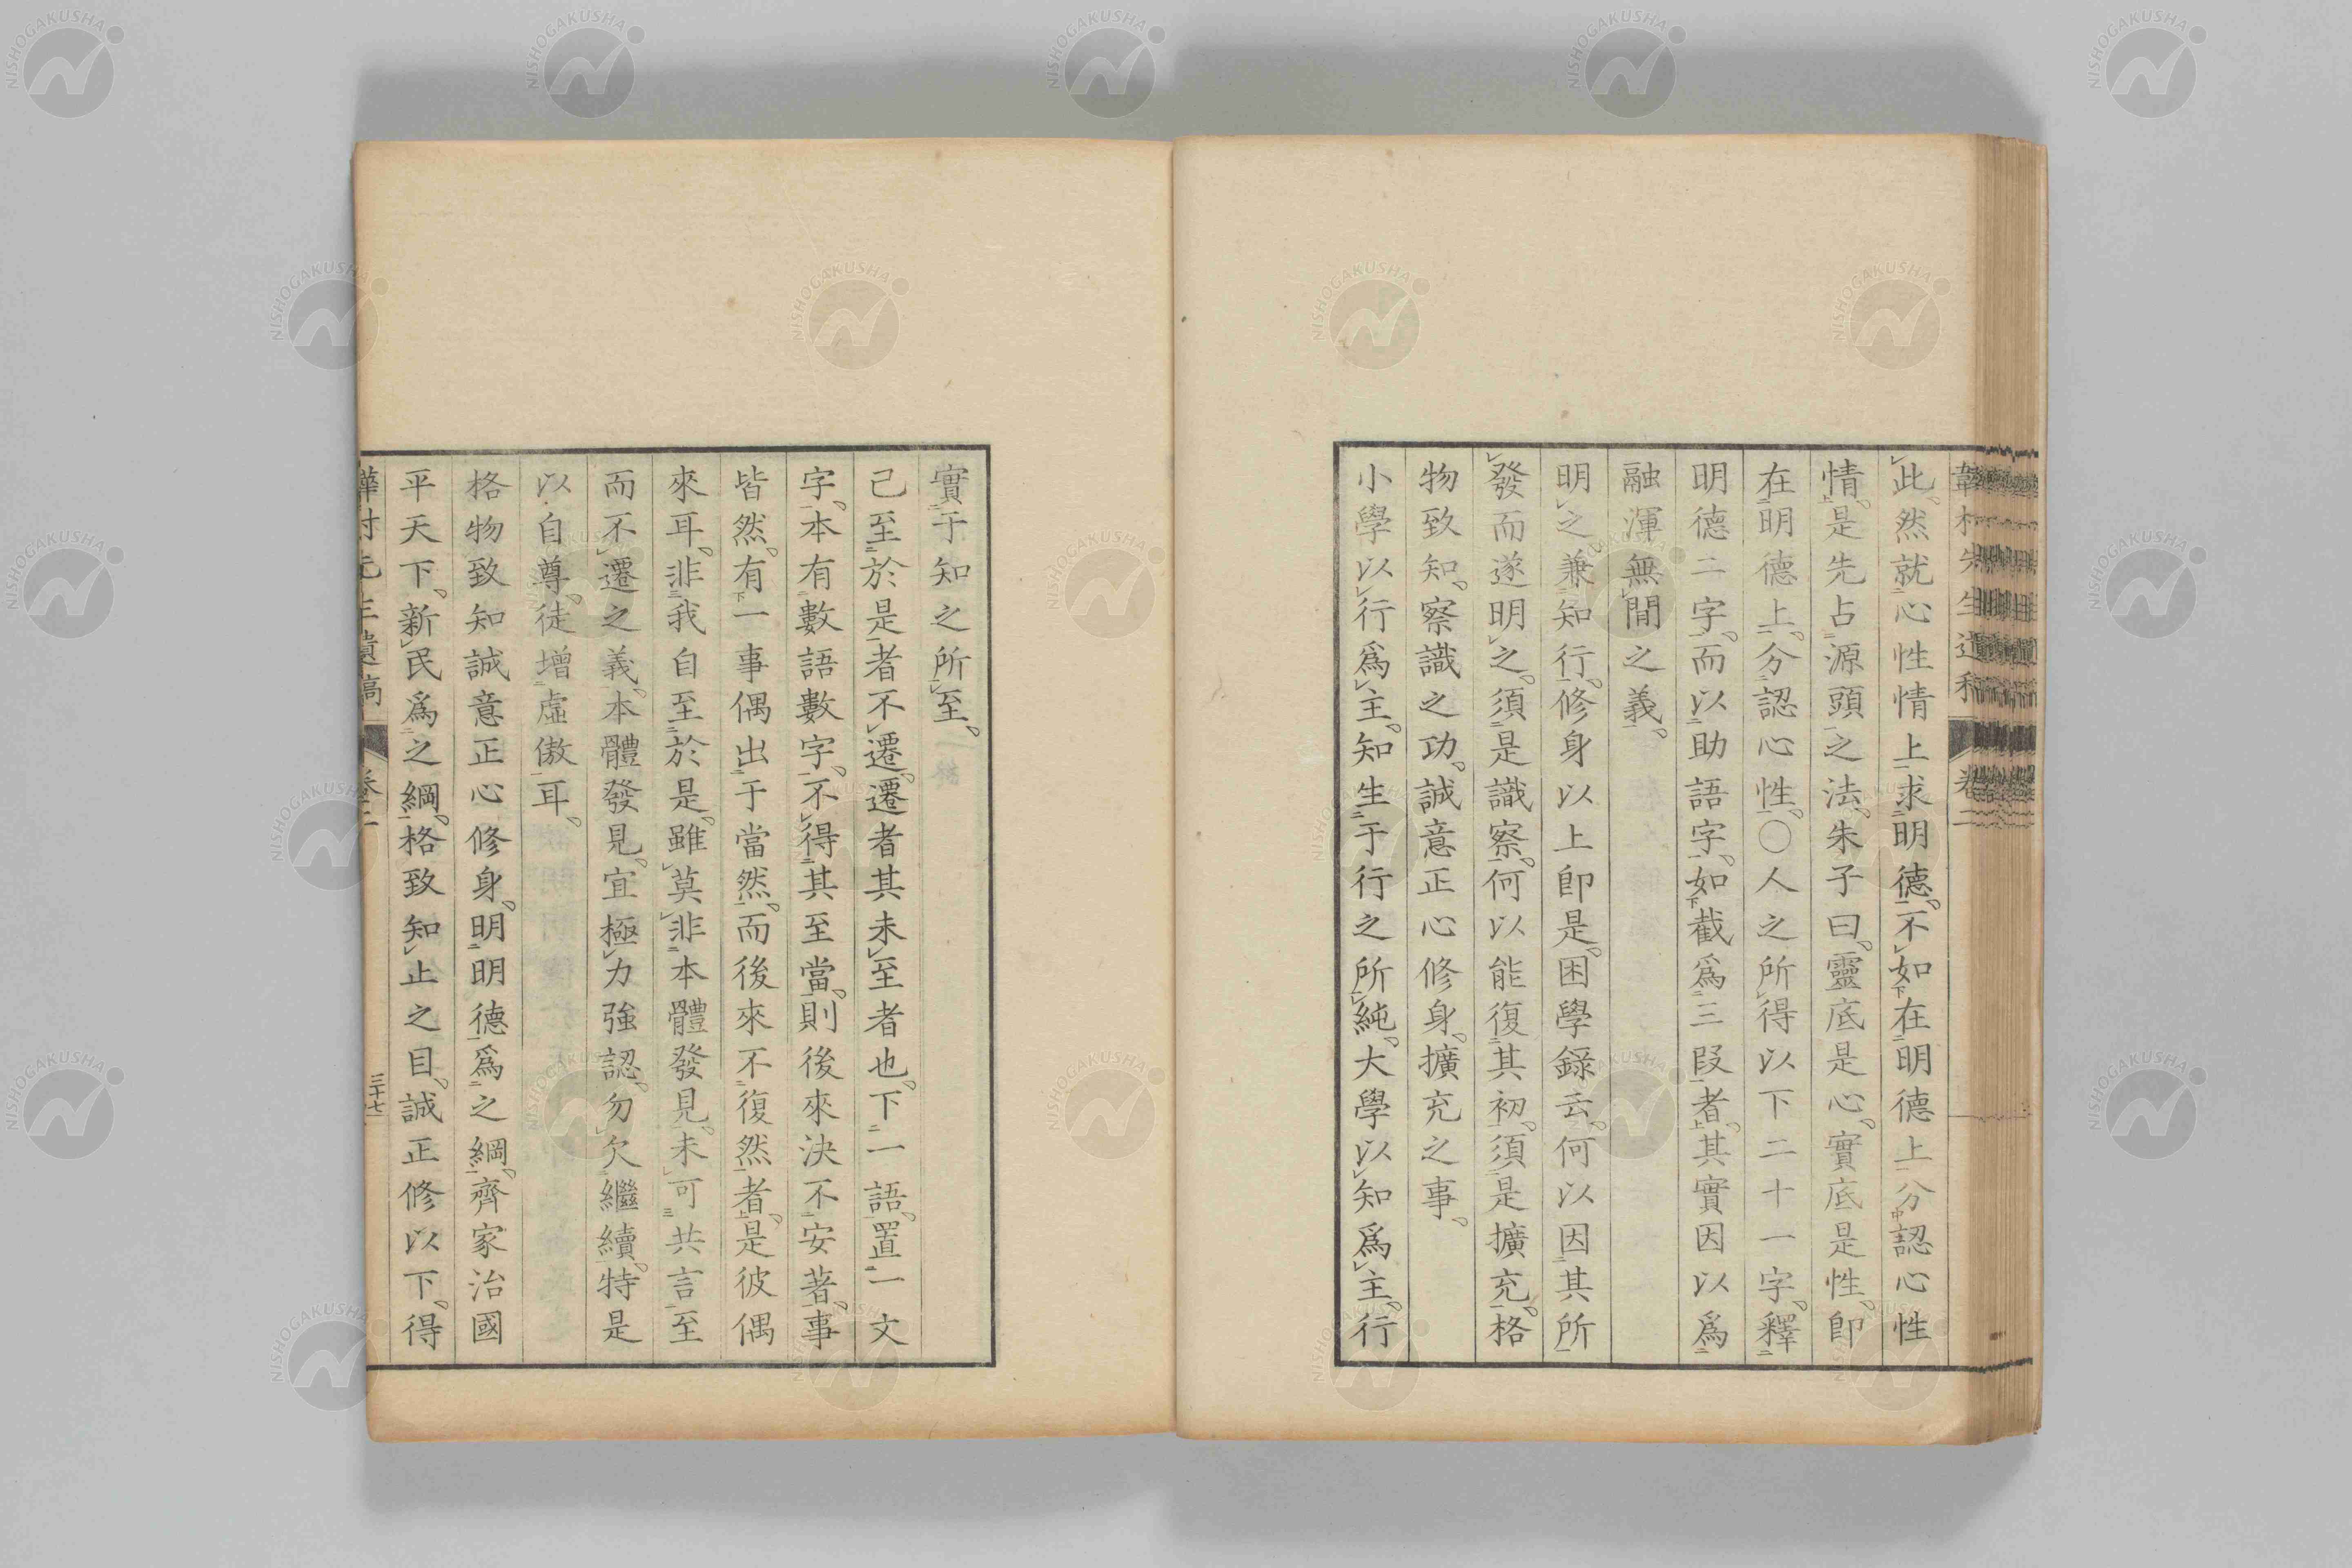 此。然就心性情上求明德。不如在明德上分認心性
情。是先占源頭之法。朱子曰。靈底是心。實底是性。即
在明德上。分認心性。〇人之所得以下二十一字。釋
明德二字。而以助語字。如截爲三段者。其實因以爲
融渾無間之義。
明之兼知行。修身以上卽是。困學錄云。何以因其所
發而遂明之。須是識察。何以能復其初。須是擴充。格
物致知。察識之功。誠意正心修身。擴充之事。
小學以行爲主。知生于行之所純。大學以知爲主。行
實于知之所至。
己至於是者不遷。遷者其未至者也。下一語。置一文
字。本有數語數字。不得其至當。則後來決不安著。事
皆然。有一事偶出于當然。而後來不復然者。是彼偶
來耳。非我自至於是。雖莫非本體發見。未可共言至
而不遷之義。本體發見。宜極力強認。勿欠繼續。特是
以自尊。徒增虛傲耳。
格物致知誠意正心修身。明明德爲之綱。齊家治國
平天下。新民爲之綱。格致知止之目。誠正修以下。得
卷二
三十七